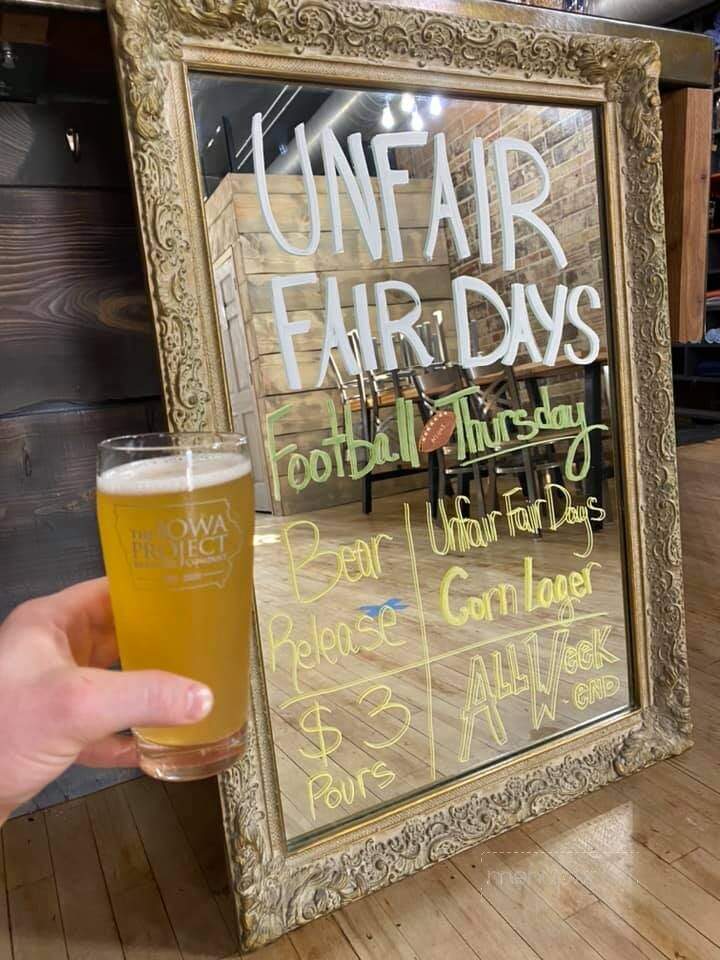 UNFAIR
FAIR DAYS
Football Thursday
Bear
Release
Unfair Fair Days
Corn Lager
$3
Pours
ALL WEEK
END
THE IOWA
PROJECT